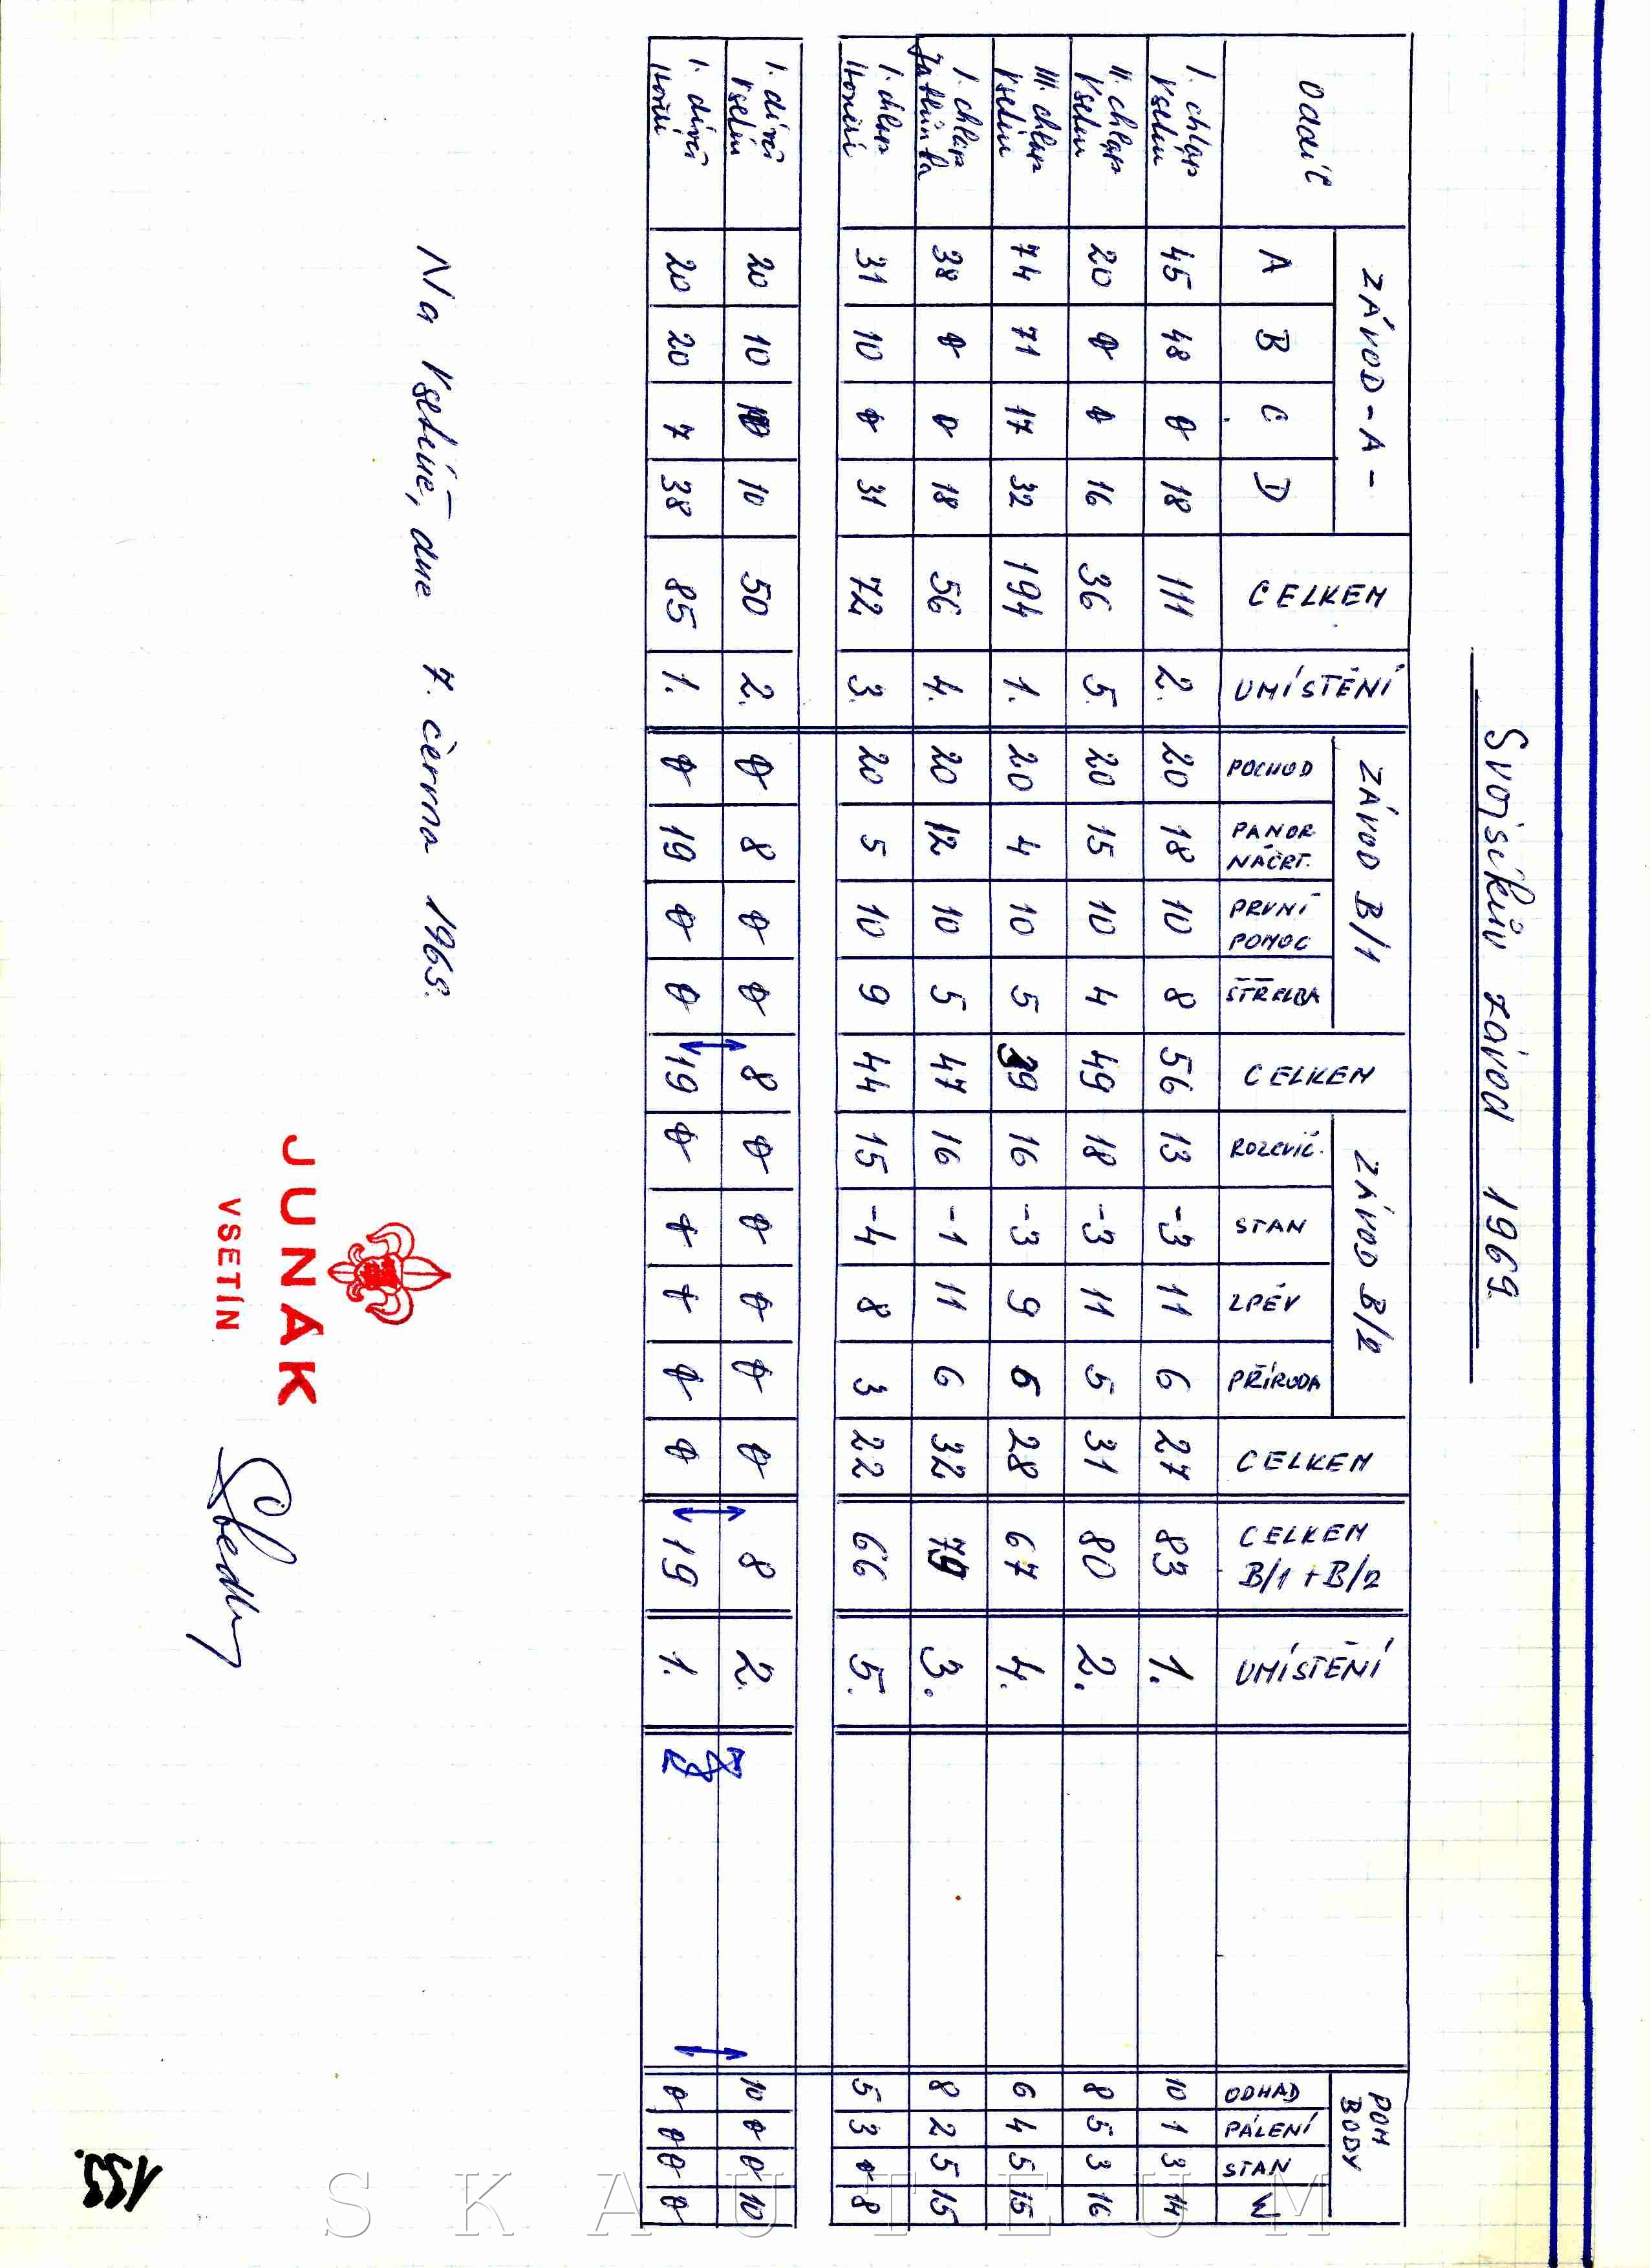 Svojsíkův závod 1969
Oddíl ZÁVOD - A - CELKEM UMÍSTĚNÍ ZÁVOD B/1 CELKEM ZÁVOD B/2 CELKEM CELKEM B/1 + B/2 UMÍSTĚNÍ POM BODY
A B C D POCHOD PANOR NÁČRT. PRVNÍ POMOC STŘELBA ROZCVIČ. STAN ZPĚV PŘÍRODA ODHAD PÁLENÍ STAN Σ
I. chlap Vsetín 45 48 0 18 111 2. 20 18 10 8 56 13 -3 11 6 27 83 1. 10 1 3 14
II. chlap Vsetín 20 0 0 16 36 5. 20 15 10 4 49 18 -3 11 5 31 80 2. 8 5 3 16
III. chlap Vsetín 74 71 17 32 194 1. 20 4 10 5 39 16 -3 9 6 28 67 4. 6 4 5 15
I. chlap Jablůnka 38 0 0 18 56 4. 20 12 10 5 47 16 -1 11 6 32 79 3. 8 2 5 15
I. chlap 31 10 0 31 72 3. 20 5 10 9 44 15 -4 8 3 22 66 5. 5 3 0 8
I. dívčí Vsetín 20 10 10 10 50 2. 0 8 0 0 8 0 0 0 0 0 8 2. 10 0 0 10
I. dívčí 20 20 7 38 85 1. 0 19 0 0 19 0 0 0 0 0 19 1. 0 0 0 0
Na Vsetíně, dne 7. června 1969.
JUNÁK
VSETÍN
155.
SKAUTEUM